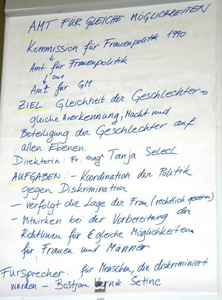 AMT FÜR GLEICHE MÖGLICHKEITEN
Kommission für Frauenpolitik 1990
Amt für Frauenpolitik
Amt für GM
ZIEL: Gleichheit der Geschlechter =
gleiche Anerkennung, Macht und
Beteiligung der Geschlechter auf
allen Ebenen.
Direktorin: Fr. mag Tanja Selecl
AUFGABEN: - Koordination der Politik
gegen Diskrimination
- verfolgt die Lage der Frau (rechtlich gesehen)
- Mitwirken bei der Vorbereitung der
Richtlinien für gleiche Möglichkeiten
für Frauen und Männer
Fürsprecher: für Menschen, die diskriminiert
wurden - Boštjan Vernik Šetinc